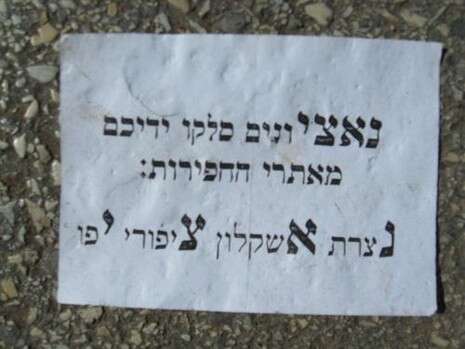 נאציונים סלקו ידיכם
מאתרי החפירות:
נצרת אשקלון ציפורי יפו